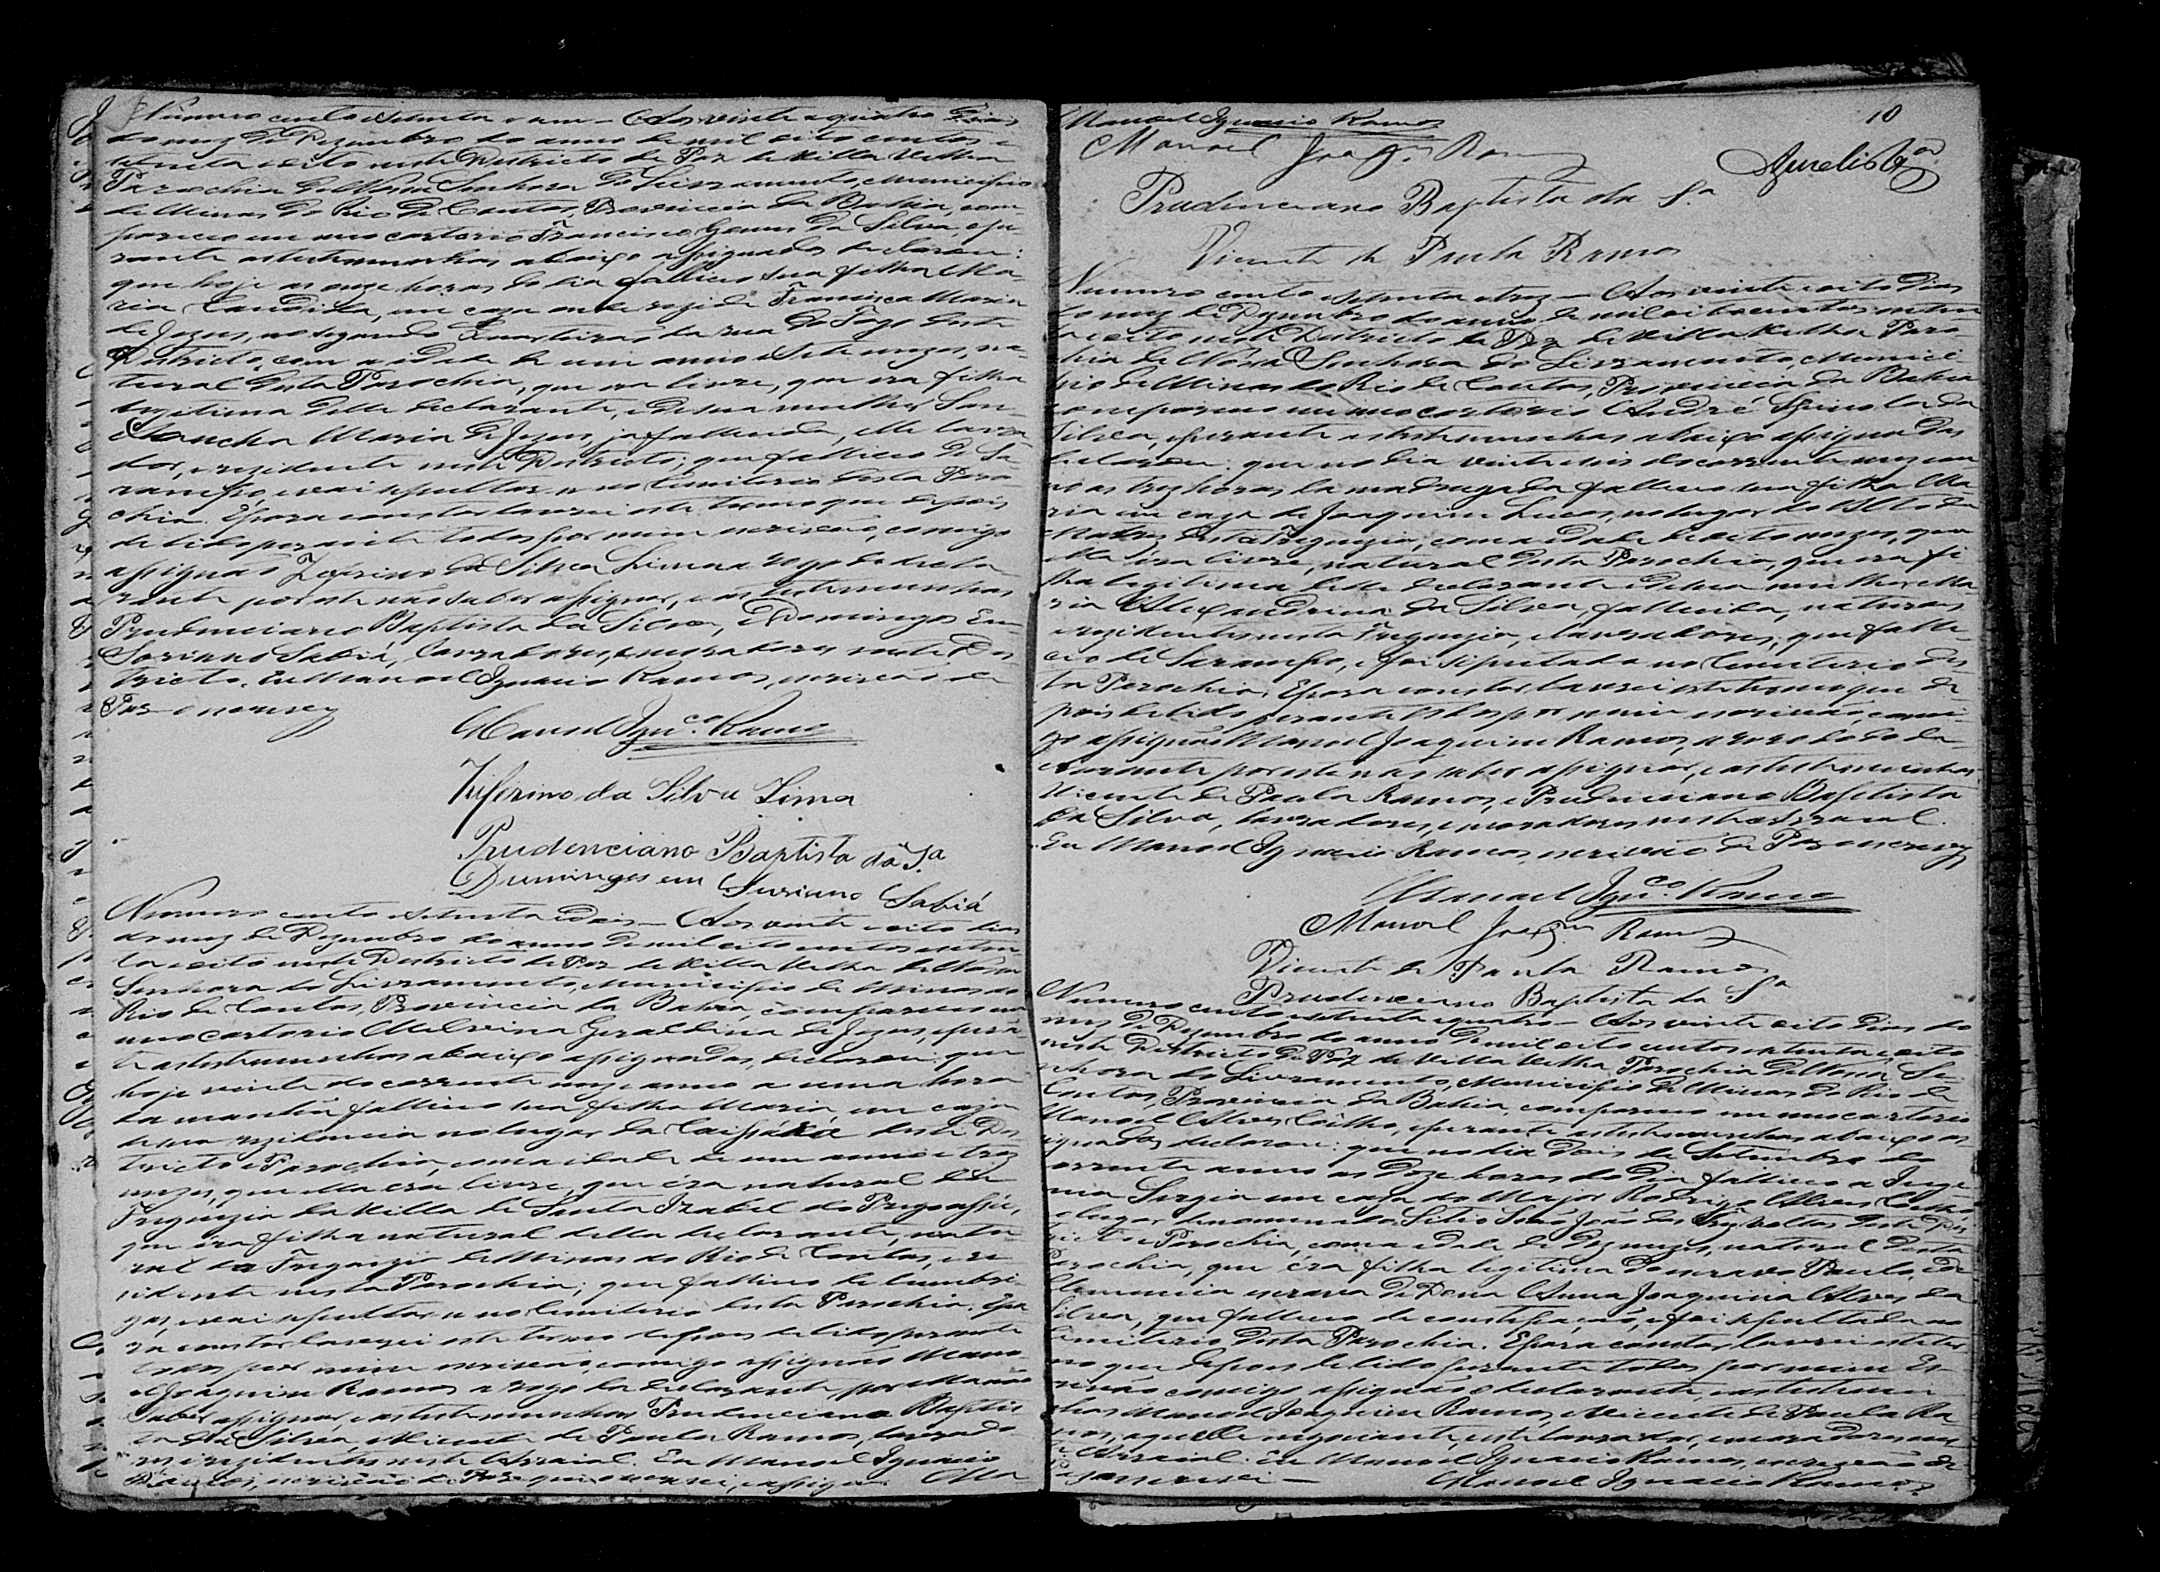 Número cento e setenta e um - Aos vinte e quatro dias
do mez de Dezembro do anno de mil oito centos e
setenta e oito neste Districto de Paz de Villa Velha
Parochia de Nossa Senhora do Livramento, Municipio
de Minas do Rio de Contas, Provincia da Bahia, com-
pareceo em meo cartorio Francisco Gomes da Silva, e pe-
rante as testemunhas abaixo assignadas declarou:
que hoje as onze horas do dia falleceo sua filha Ma-
ria Candida, em caza onde rezide Francisca Maria
de Jezus, no segundo Quarteirão da rua do Fogo deste
Districto, com a idade de um anno e sete mezes, na-
tural desta Parochia, que era livre, que era filha
legitima delle declarante, e de sua mulher
Sancha Maria de Jezus, já fallecida, elle lavra-
dor, e rezidente neste Districto; que falleceo de Sa-
rampo, e vai sepultar-se no Cemiterio desta Paro-
chia. E para constar lavrei este termo que depois
de lido perante todos por mim escrivão, comigo
assignão Zeferino da Silva Lima a rogo do decla-
rante por este não saber assignar, e as testemunhas
Prudenciano Baptista da Silva, e Domingos Em
Soriano Sabiá, lavradores, e moradores neste Dis-
tricto. Eu Manoel Ignacio Ramos, escrivão de
Paz o escrevy
Manoel Ignco. Ramos
Ziferino da Silva Lima
Prudenciano Baptista da Sa
Dumingos em Suriano Sabiá
Numero cento e setenta e dois - Aos vinte e oito dias
do mez de Dezembro do anno de mil oito centos e seten-
ta e oito neste Districto de Paz de Villa Velha de Nossa
Senhora do Livramento, Municipio de Minas do
Rio de Contas, Provincia da Bahia, compareceo em
meo cartorio Geraldina de Jezus, e peran-
te as testemunhas abaixo assignadas, declarou: que
hoje vinte do corrente mez e anno a uma hora
da manhã falleceo sua filha Maria, em caza
de sua rezidencia no lugar da deste Dis-
tricto e Parochia, com a idade de um anno e trez
mezes, que ella era livre, que éra natural da
Freguezia da Villa de Santa Izabel do Paraguassú,
que éra filha natural della declarante, natu-
ral da Freguezia de Minas do Rio de Contas, e re-
zidente nesta Parochia; que falleceo de lumbri-
gas, e vai sepultar-se no Cemiterio desta Parochia. E pa-
ra constar lavrei este termo depois de lido perante
todos por mim escrivão, comigo assignão Mano-
el Joaquim Ramos a rogo da declarante por não
saber assignar, e as testemunhas Prudenciano Baptis-
ta da Silva, e Vicente de Paula Ramos, lavrado-
res e rezidentes neste Arraial. Eu Manoel Ignacio
Ramos, escrivão de Paz que o escrevi, e assigno.
Manoel Ignacio Ramos
10
Manoel Joaqm Ramos
Prudenciano Baptista da Sa
Vicente de Paula Ramos
Numero cento e setenta e trez - Aos vinte e oito dias
do mez de Dezembro do anno de mil oitocentos e seten-
ta e oito neste Districto de Paz de Villa Velha Paro-
chia de Nossa Senhora do Livramento, Munici-
pio de Minas do Rio de Contas, Provincia da Bahia
compareceo em meo cartorio André Spinola da
Silva, e perante as testemunhas abaixo assignadas
declarou: que no dia vinte e seis do corrente mez e an-
no as trez horas da madrugada falleceo sua filha Ma-
ria em caza de Joaquim Lucas, no lugar do Alto da
Matriz desta Freguezia, com a idade de oito mezes, que
ella éra livre, natural desta Parochia, que era fi-
lha legitima delle declarante e de sua mulher Ma-
ria Alexandrina da Silva, fallecida, naturaes
e rezidentes nesta Freguezia, e lavradores, que falle-
ceo de Sarampo, e foi sepultada no Cemiterio des-
ta Parochia. E para constar lavrei este termo que de-
pois de lido perante todos por mim escrivão, comi-
go assignão Manoel Joaquim Ramos, a rogo do de-
clarante por este não saber assignar, e as testemunhas
Vicente de Paula Ramos, e Prudenciano Baptista
da Silva, lavradores, e moradores neste Arraial.
Eu Manoel Ignacio Ramos, escrivão de Paz o escrevy
Manoel Ignco. Ramos
Manoel Joaqm Ramos
Vicente de Paula Ramos
Prudenciano Baptista da Sa
Numero cento e setenta e quatro - Aos vinte e oito dias do
mez de Dezembro do anno de mil oito centos e setenta e oito
neste Districto de Paz de Villa Velha, Parochia de Nossa Se-
nhora do Livramento, Municipio de Minas do Rio de
Contas, Provincia da Bahia, compareceo em meo cartorio
Manoel Alves Coêlho, e perante as testemunhas abaixo as-
ignadas declarou: que no dia dois de Setembro do
corrente anno as doze horas do dia falleceo a Inge-
nua Sergia em caza do Major Rodrigo Alves Coelho
no lugar denominado Sitio São João das deste Dis-
tricto e Parochia, com a idade de dez mezes, natural desta
Parochia, que éra filha legitima do escravo Paulo, e de
Clemencia escrava de Dona Anna Joaquina Alves da
Silva, que falleceo de constipação, e foi sepultada no
Cemiterio desta Parochia. E para constar lavrei este ter-
mo que depois de lido perante todos por mim Es-
crivão comigo assignão o declarante, e as testemu-
nhas Manoel Joaquim Ramos, e Vicente de Paula Ra-
mos, aquelle negociante, este lavrador, e moradores nes-
te Arraial. Eu Manoel Ignacio Ramos, escrivão de
Paz o escrevi -
Manoel Ignacio Ramos